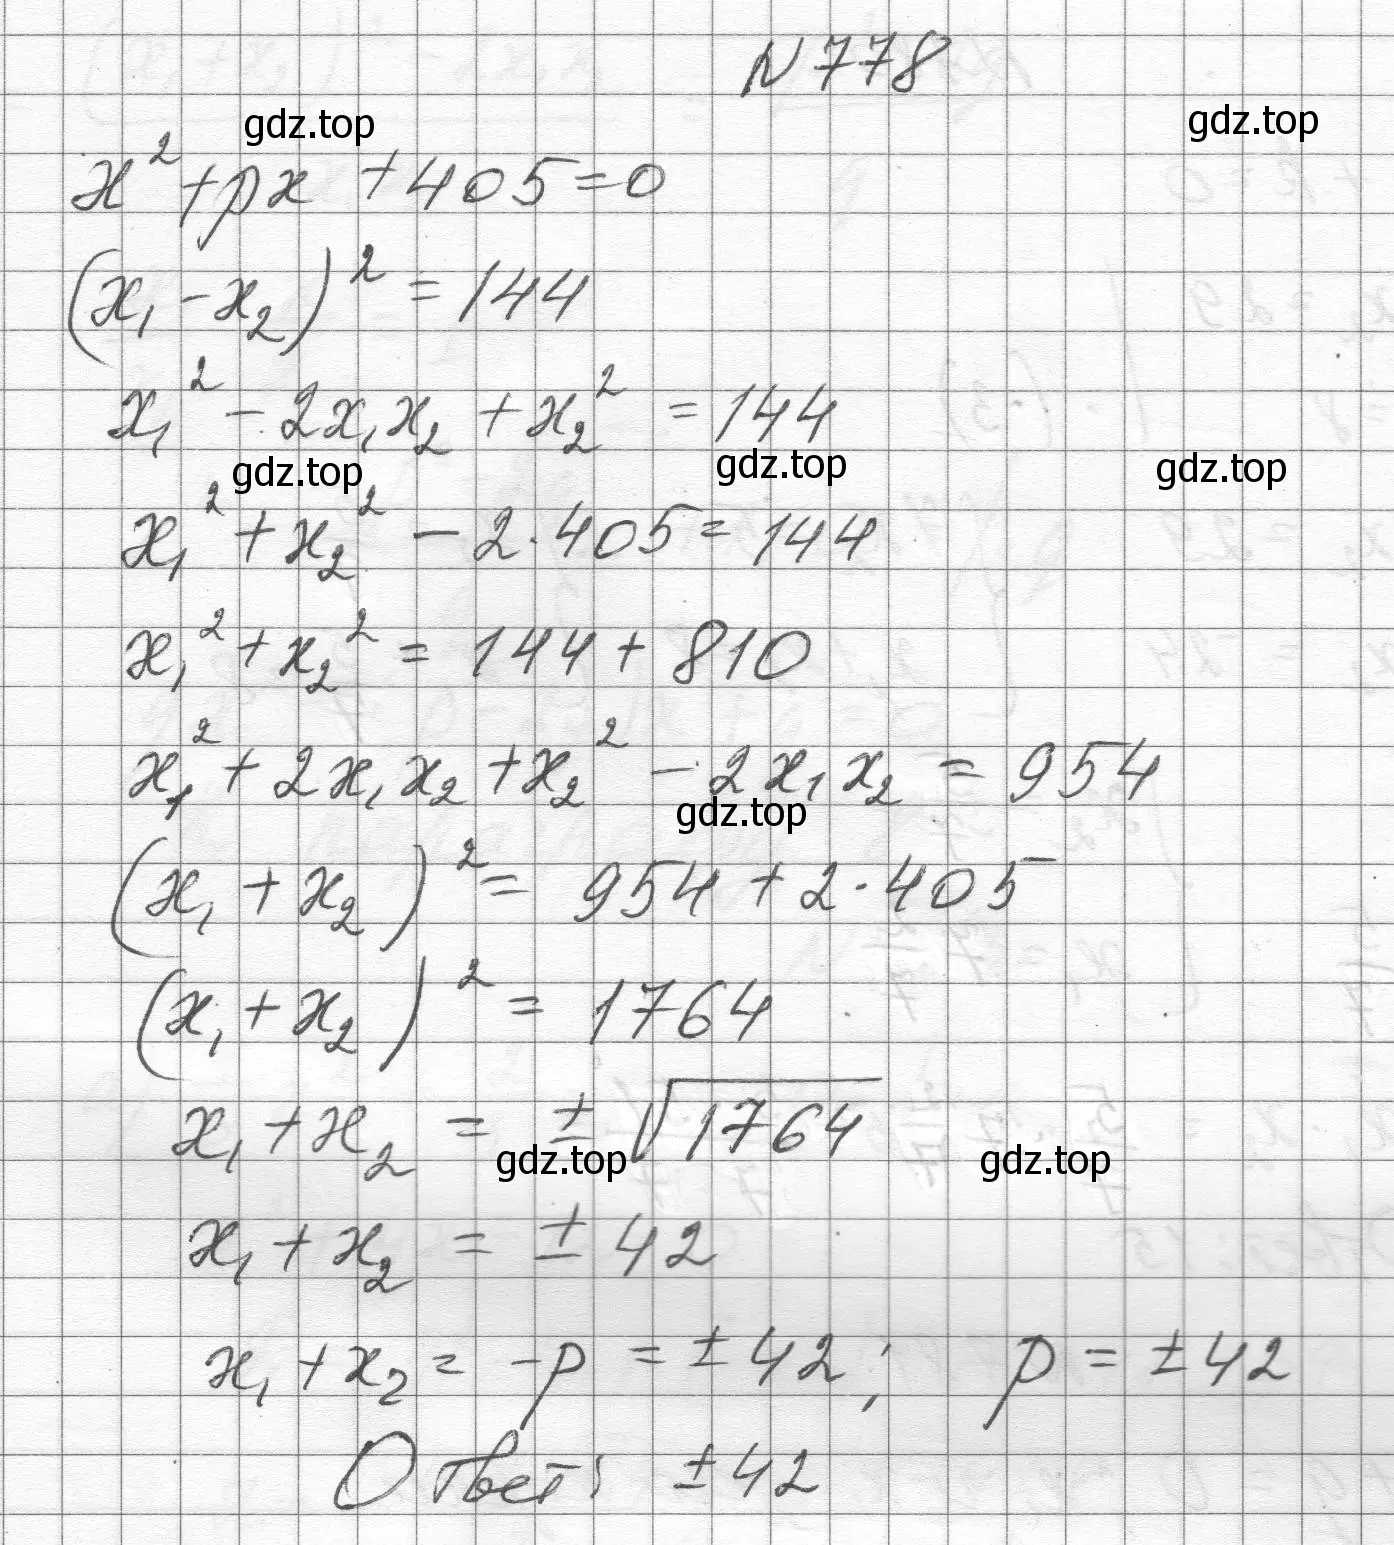 N 778
gdz.top gdz.top
x² + px + 405 = 0
(x₁ - x₂)² = 144
x₁² - 2x₁x₂ + x₂² = 144
gdz.top gdz.top gdz.top
x₁² + x₂² - 2·405 = 144
x₁² + x₂² = 144 + 810
x₁² + 2x₁x₂ + x₂² - 2x₁x₂ = 954
gdz.top
(x₁ + x₂)² = 954 + 2·405
(x₁ + x₂)² = 1764
x₁ + x₂ = ± √1764
gdz.top gdz.top
x₁ + x₂ = ± 42
x₁ + x₂ = -p = ± 42; p = ± 42
Ответ: ± 42